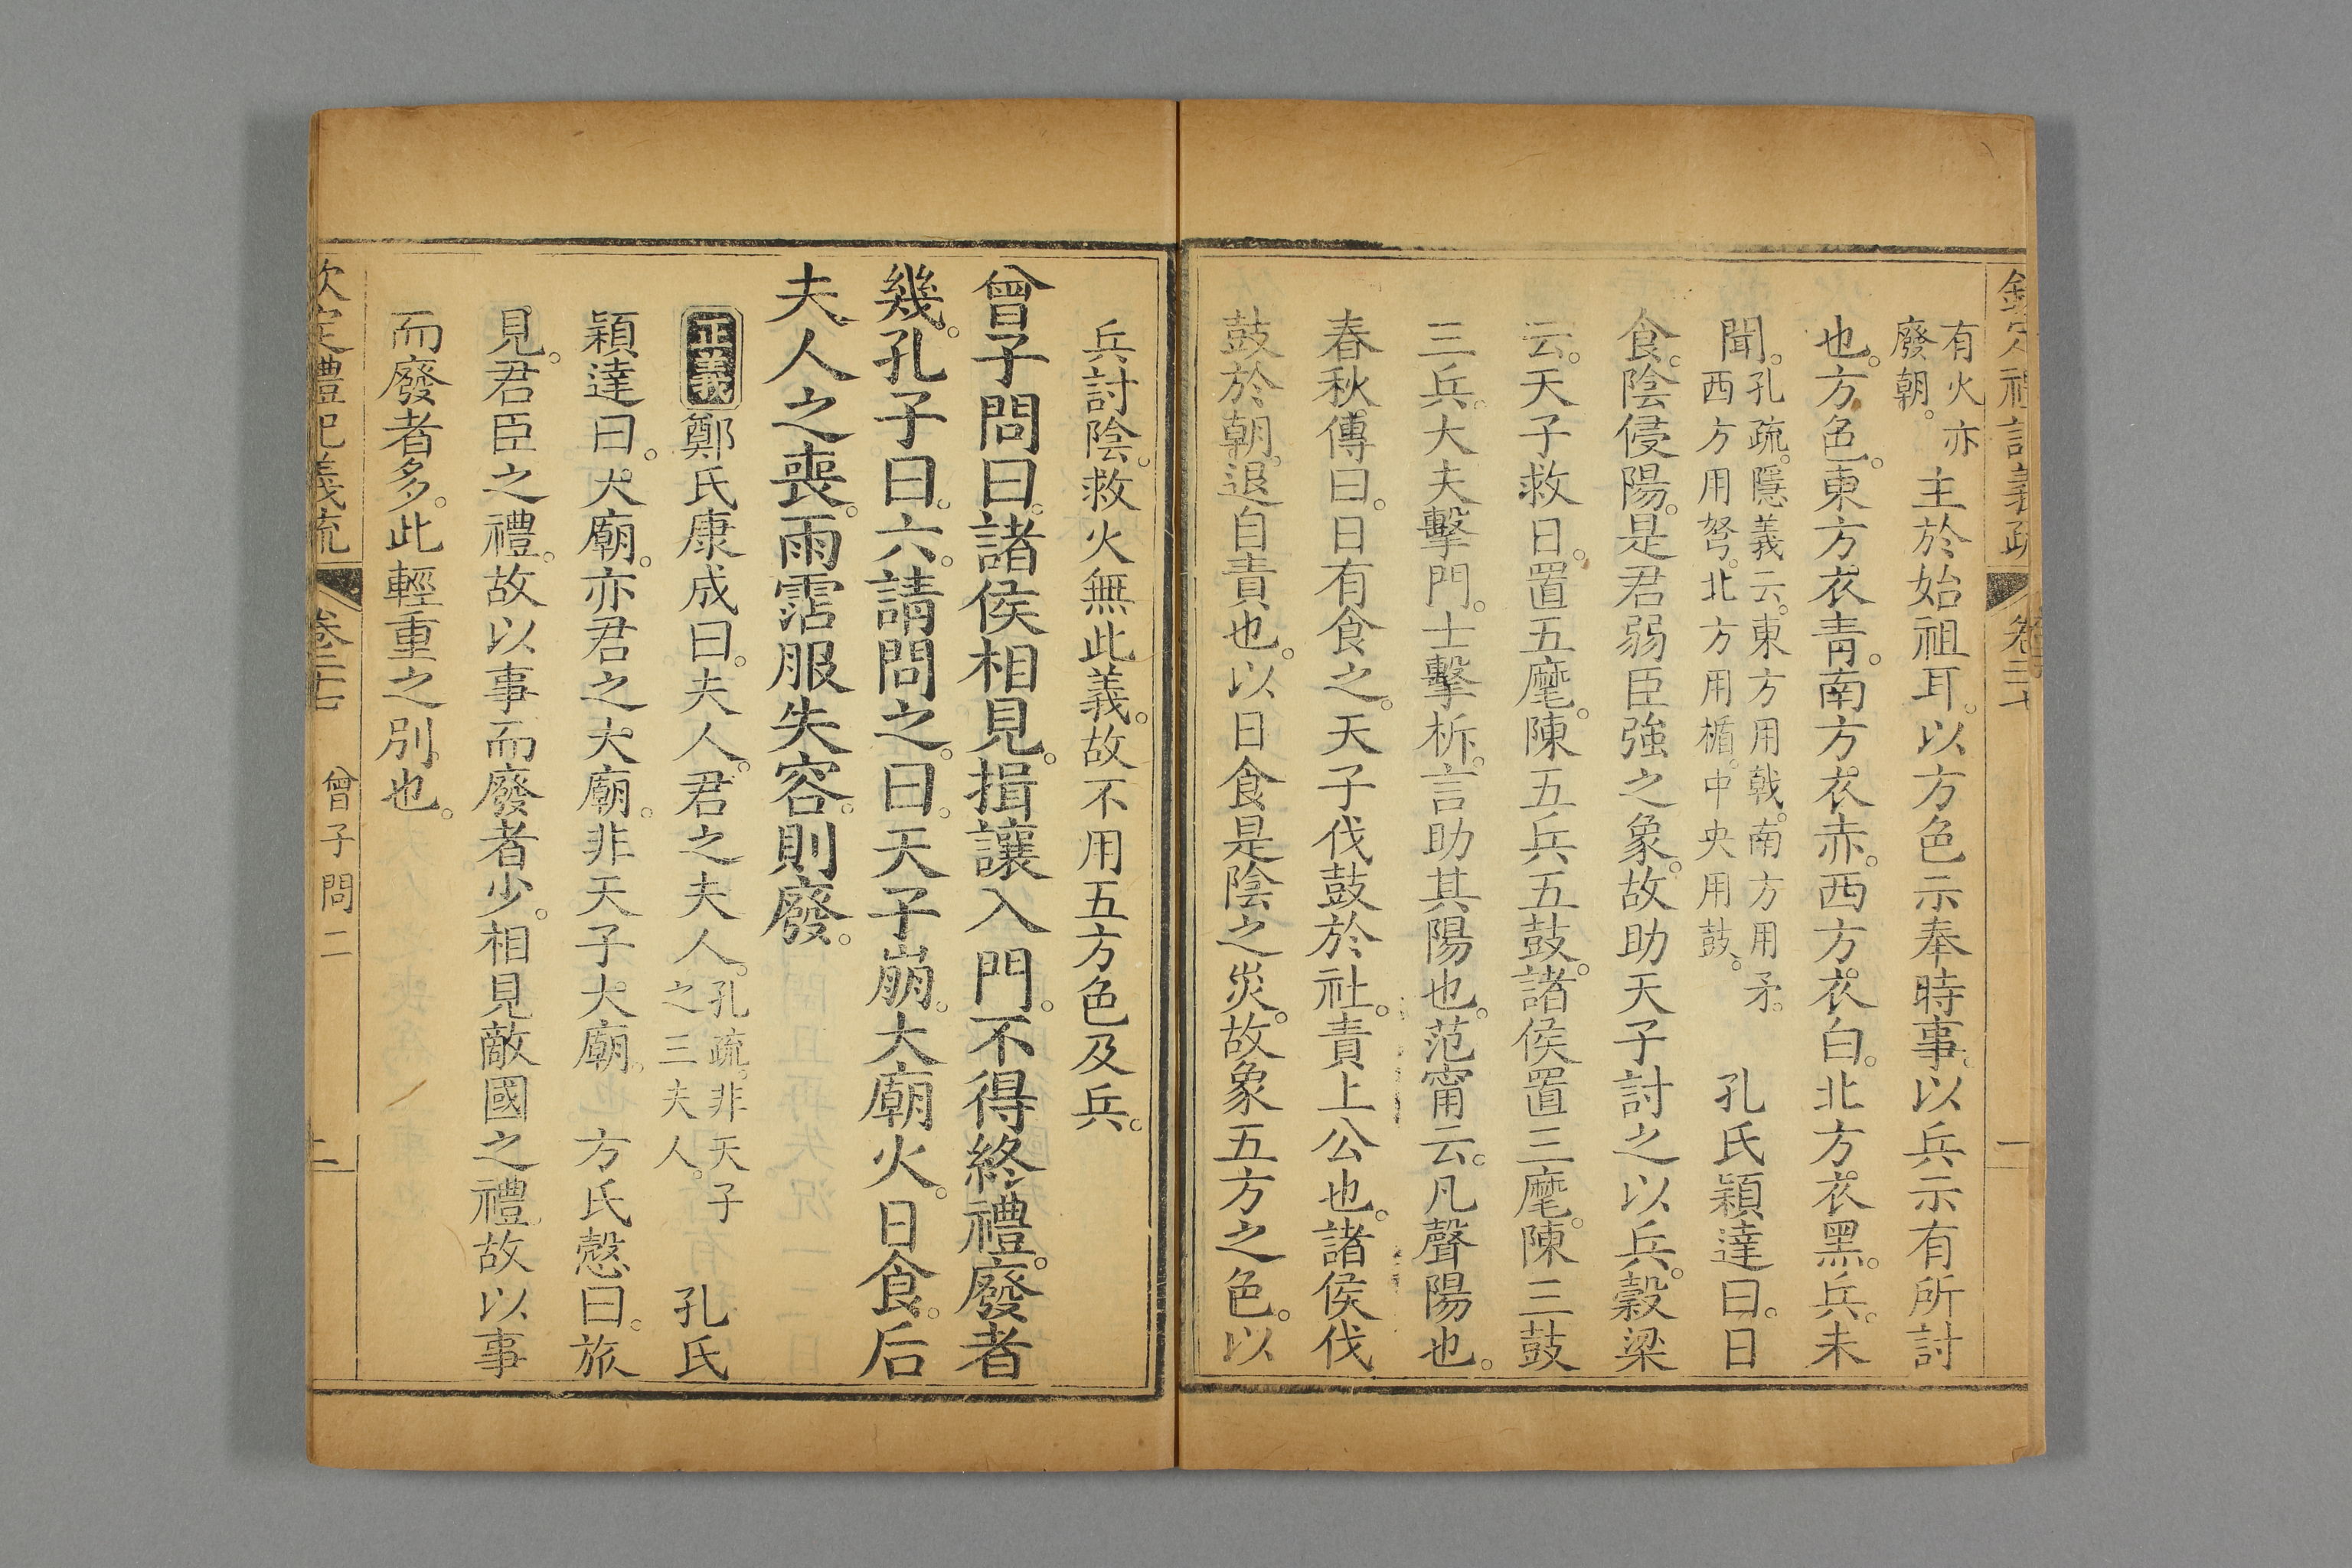 欽定禮記義疏
有火亦廢朝。主於始祖耳。以方色示奉時事。以兵示有所討
也。方色。東方衣青。南方衣赤。西方衣白。北方衣黑。兵。未
聞。孔疏。隱義云。東方用戟。南方用矛。西方用弩。北方用楯。中央用鼓。 孔氏穎達曰。日
食。陰侵陽。是君弱臣強之象。故助天子討之以兵。穀梁
云。天子救日。置五麾。陳五兵五鼓。諸侯置三麾。陳三鼓
三兵。大夫擊門。士擊柝。言助其陽也。范甯云。凡聲陽也。
春秋傳曰。日有食之。天子伐鼓於社。責上公也。諸侯伐
鼓於朝。退自責也。以日食是陰之災。故象五方之色。以
兵討陰。救火無此義。故不用五方色及兵。
曾子問曰。諸侯相見。揖讓入門。不得終禮。廢者
幾。孔子曰。六。請問之。曰。天子崩。大廟火。日食。后
夫人之喪。雨霑服失容。則廢。
正義 鄭氏康成曰。夫人。君之夫人。孔疏。非天子之三夫人。 孔氏
穎達曰。大廟。亦君之大廟。非天子大廟。 方氏慤曰。旅
見。君臣之禮。故以事而廢者少。相見敵國之禮。故以事
而廢者多。此輕重之別也。
欽定禮記義疏 曾子問二 二